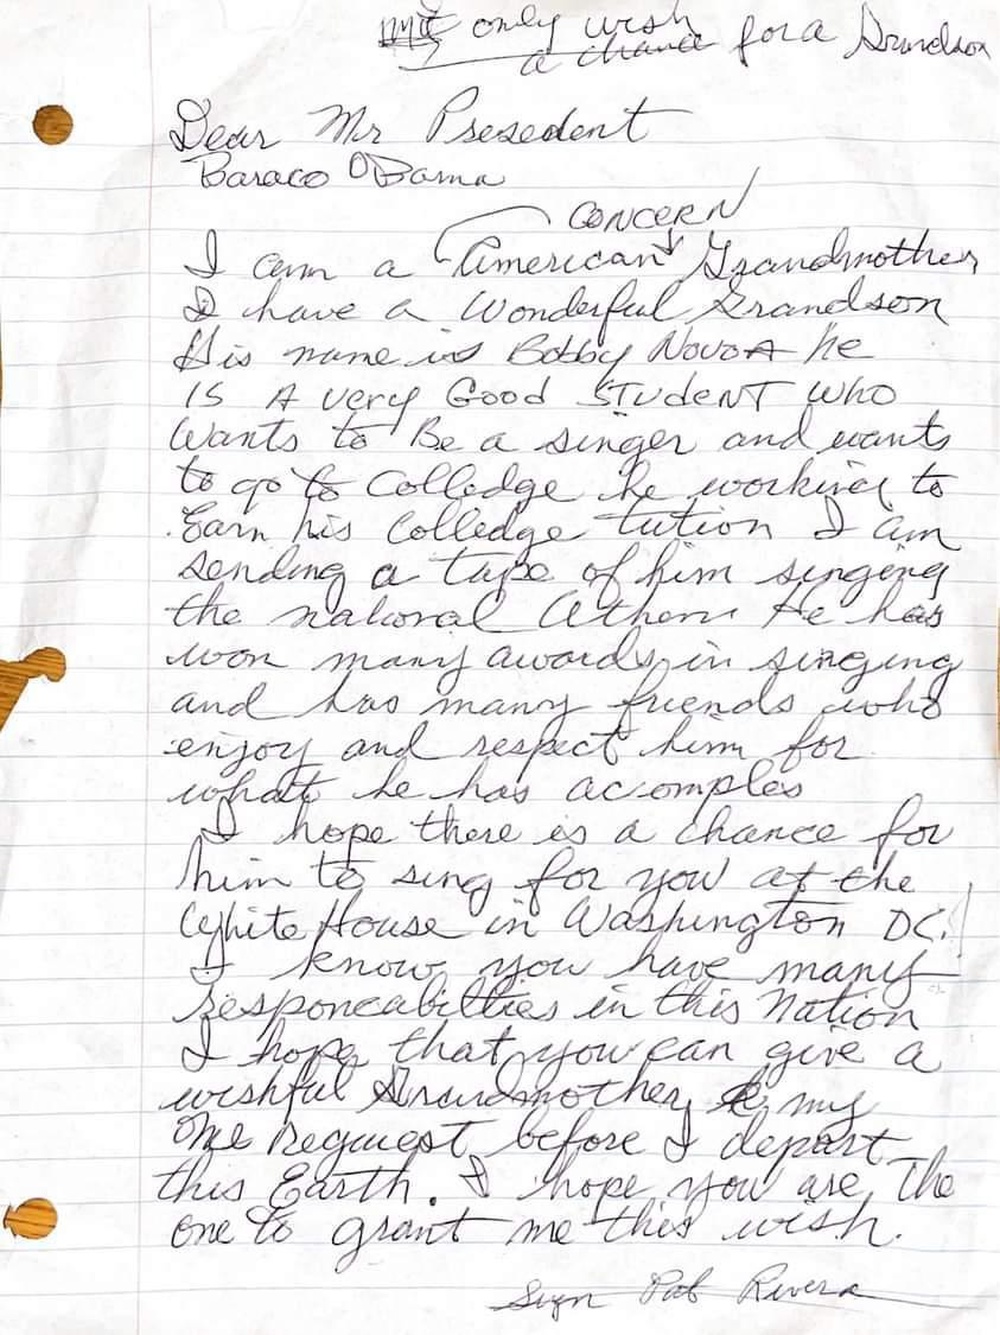 only wish
a chance for a Grandson
Dear Mr Presedent
Baraco OBama
CONCERN
I am a American Grandmother
I have a Wonderful Grandson
His name is Bobby NovoA he
IS A very Good STudeNT who
Wants to Be a singer and wants
to go to Colledge he working to
Earn his Colledge tution I am
sending a tape of him singing
the national Athem. He has
won many awards in singing
and has many friends who
enjoy and respect him for
what he has acomples
I hope there is a chance for
him to sing for you at the
White House in Washington DC.
I know you have many
responcabilties in this Nation
I hope that you can give a
wishful Grandmother my
one request before I depart
this Earth. I hope you are The
one to grant me this wish.
Sign Pat Rivera